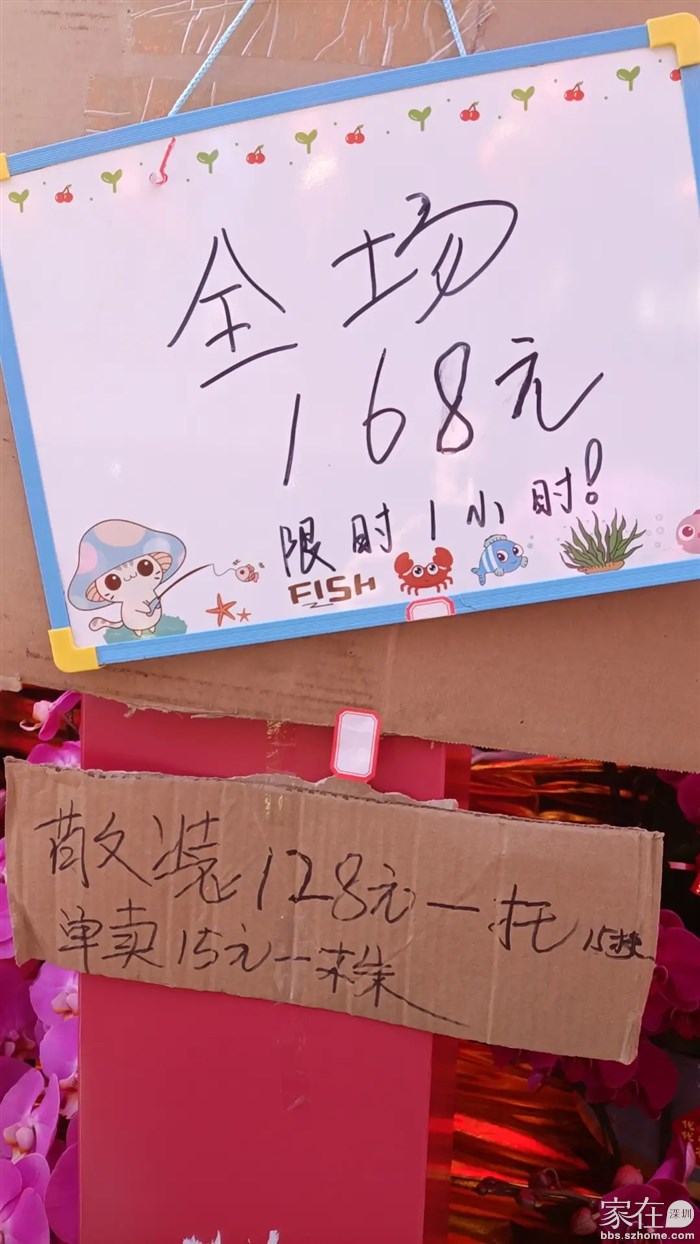 全场
168元
限时1小时!
FISH
散装128元一托15株
单卖15元一株
家在深圳
bbs.szhome.com